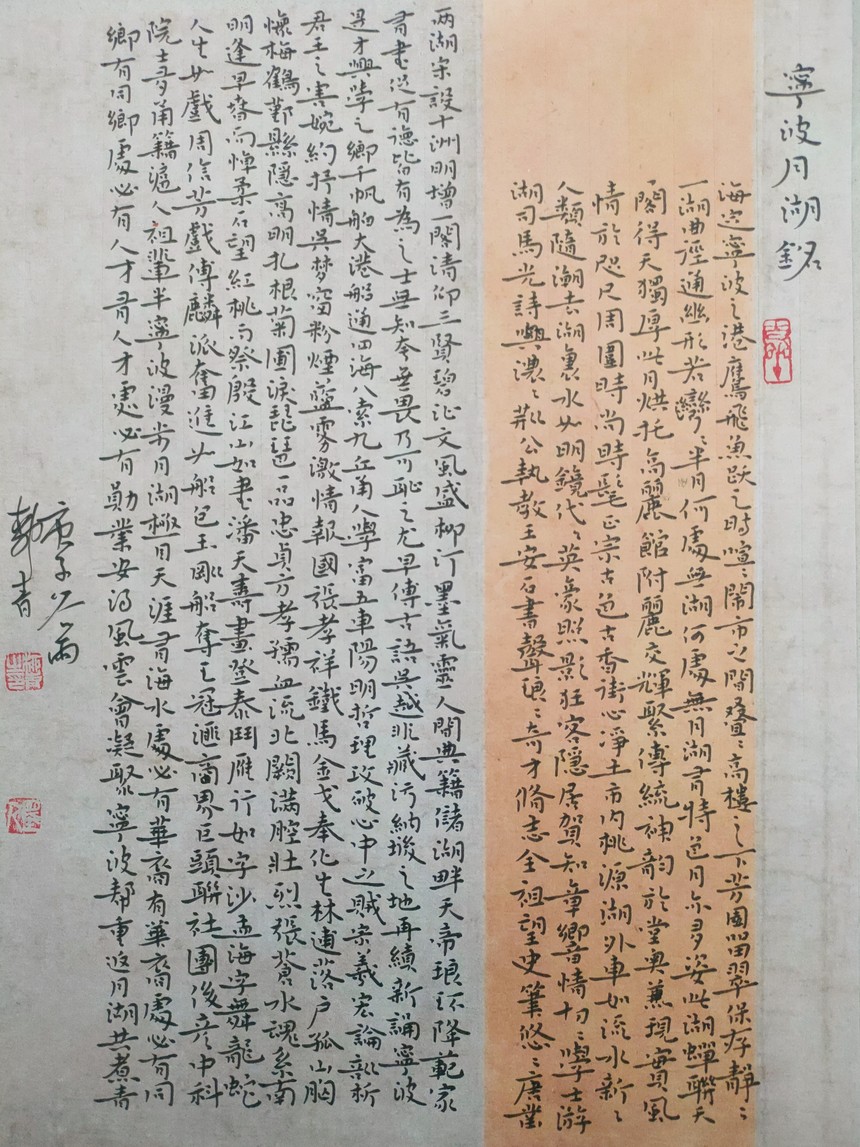 寧波月湖銘
海定寧波之港鷹飛魚跃之時喧〻鬧市之間疊〻高樓之下芳園留翠保存靜〻
一湖曲徑通幽形若彎〻半月何處無湖何處無月湖有特色月亦多姿此湖蟬聯天
閣得天獨厚此月烘托高麗館附麗交輝緊傳統神韵於堂奥兼現實風
情於咫尺周圍時尚時髦正宗古色古香街心淨土市内桃源湖外車如流水新〻
人類隨潮去湖裏水如明鏡代〻英豪照影狂客隱居賀知章鄉音情切〻學士游
湖司馬光詩興濃〻荆公執教王安石書聲琅〻奇才脩志全祖望史筆悠〻唐鑿
兩湖宋設十洲明增一閣清仰三賢碧沚文風盛柳汀墨氣靈人間典籍儲湖畔天帝琅環降範家
有書從有德皆有為之士無知本無畏乃可恥之尤早傳古語吳越非藏污納垢之地再續新誦寧波
是才興學之鄉千帆船大港船通四海八索九丘甬人學富五車陽明哲理攻破心中之賊宗義宏論剖析
君王之害婉約抒情吳梦窗粉煙藍雾激情報國張孝祥鐵馬金戈奉化生林逋落户孤山胸
懷梅鶴鄞縣隱高明扎根菊圃淚琵琶一品忠貞方孝孺血流北闕滿腔壯烈張蒼水魂系南
明逢早春而悼柔石望紅桃而祭殷江山如畫潘天壽畫登泰鬥雁行如字沙孟海字舞龍蛇
人生如戲周信芳戲傳麟派奮進如船包玉剛船奪王冠滙商界巨頭聯社團後彦中科
院士多甬籍滬人祖輩半寧波漫步月湖極目天涯有海水處必有華裔有華裔處必有同
鄉有同鄉處必有人才有人才處必有勛業安得風雲會凝聚寧波帮重返月湖共煮青
庚子公萌